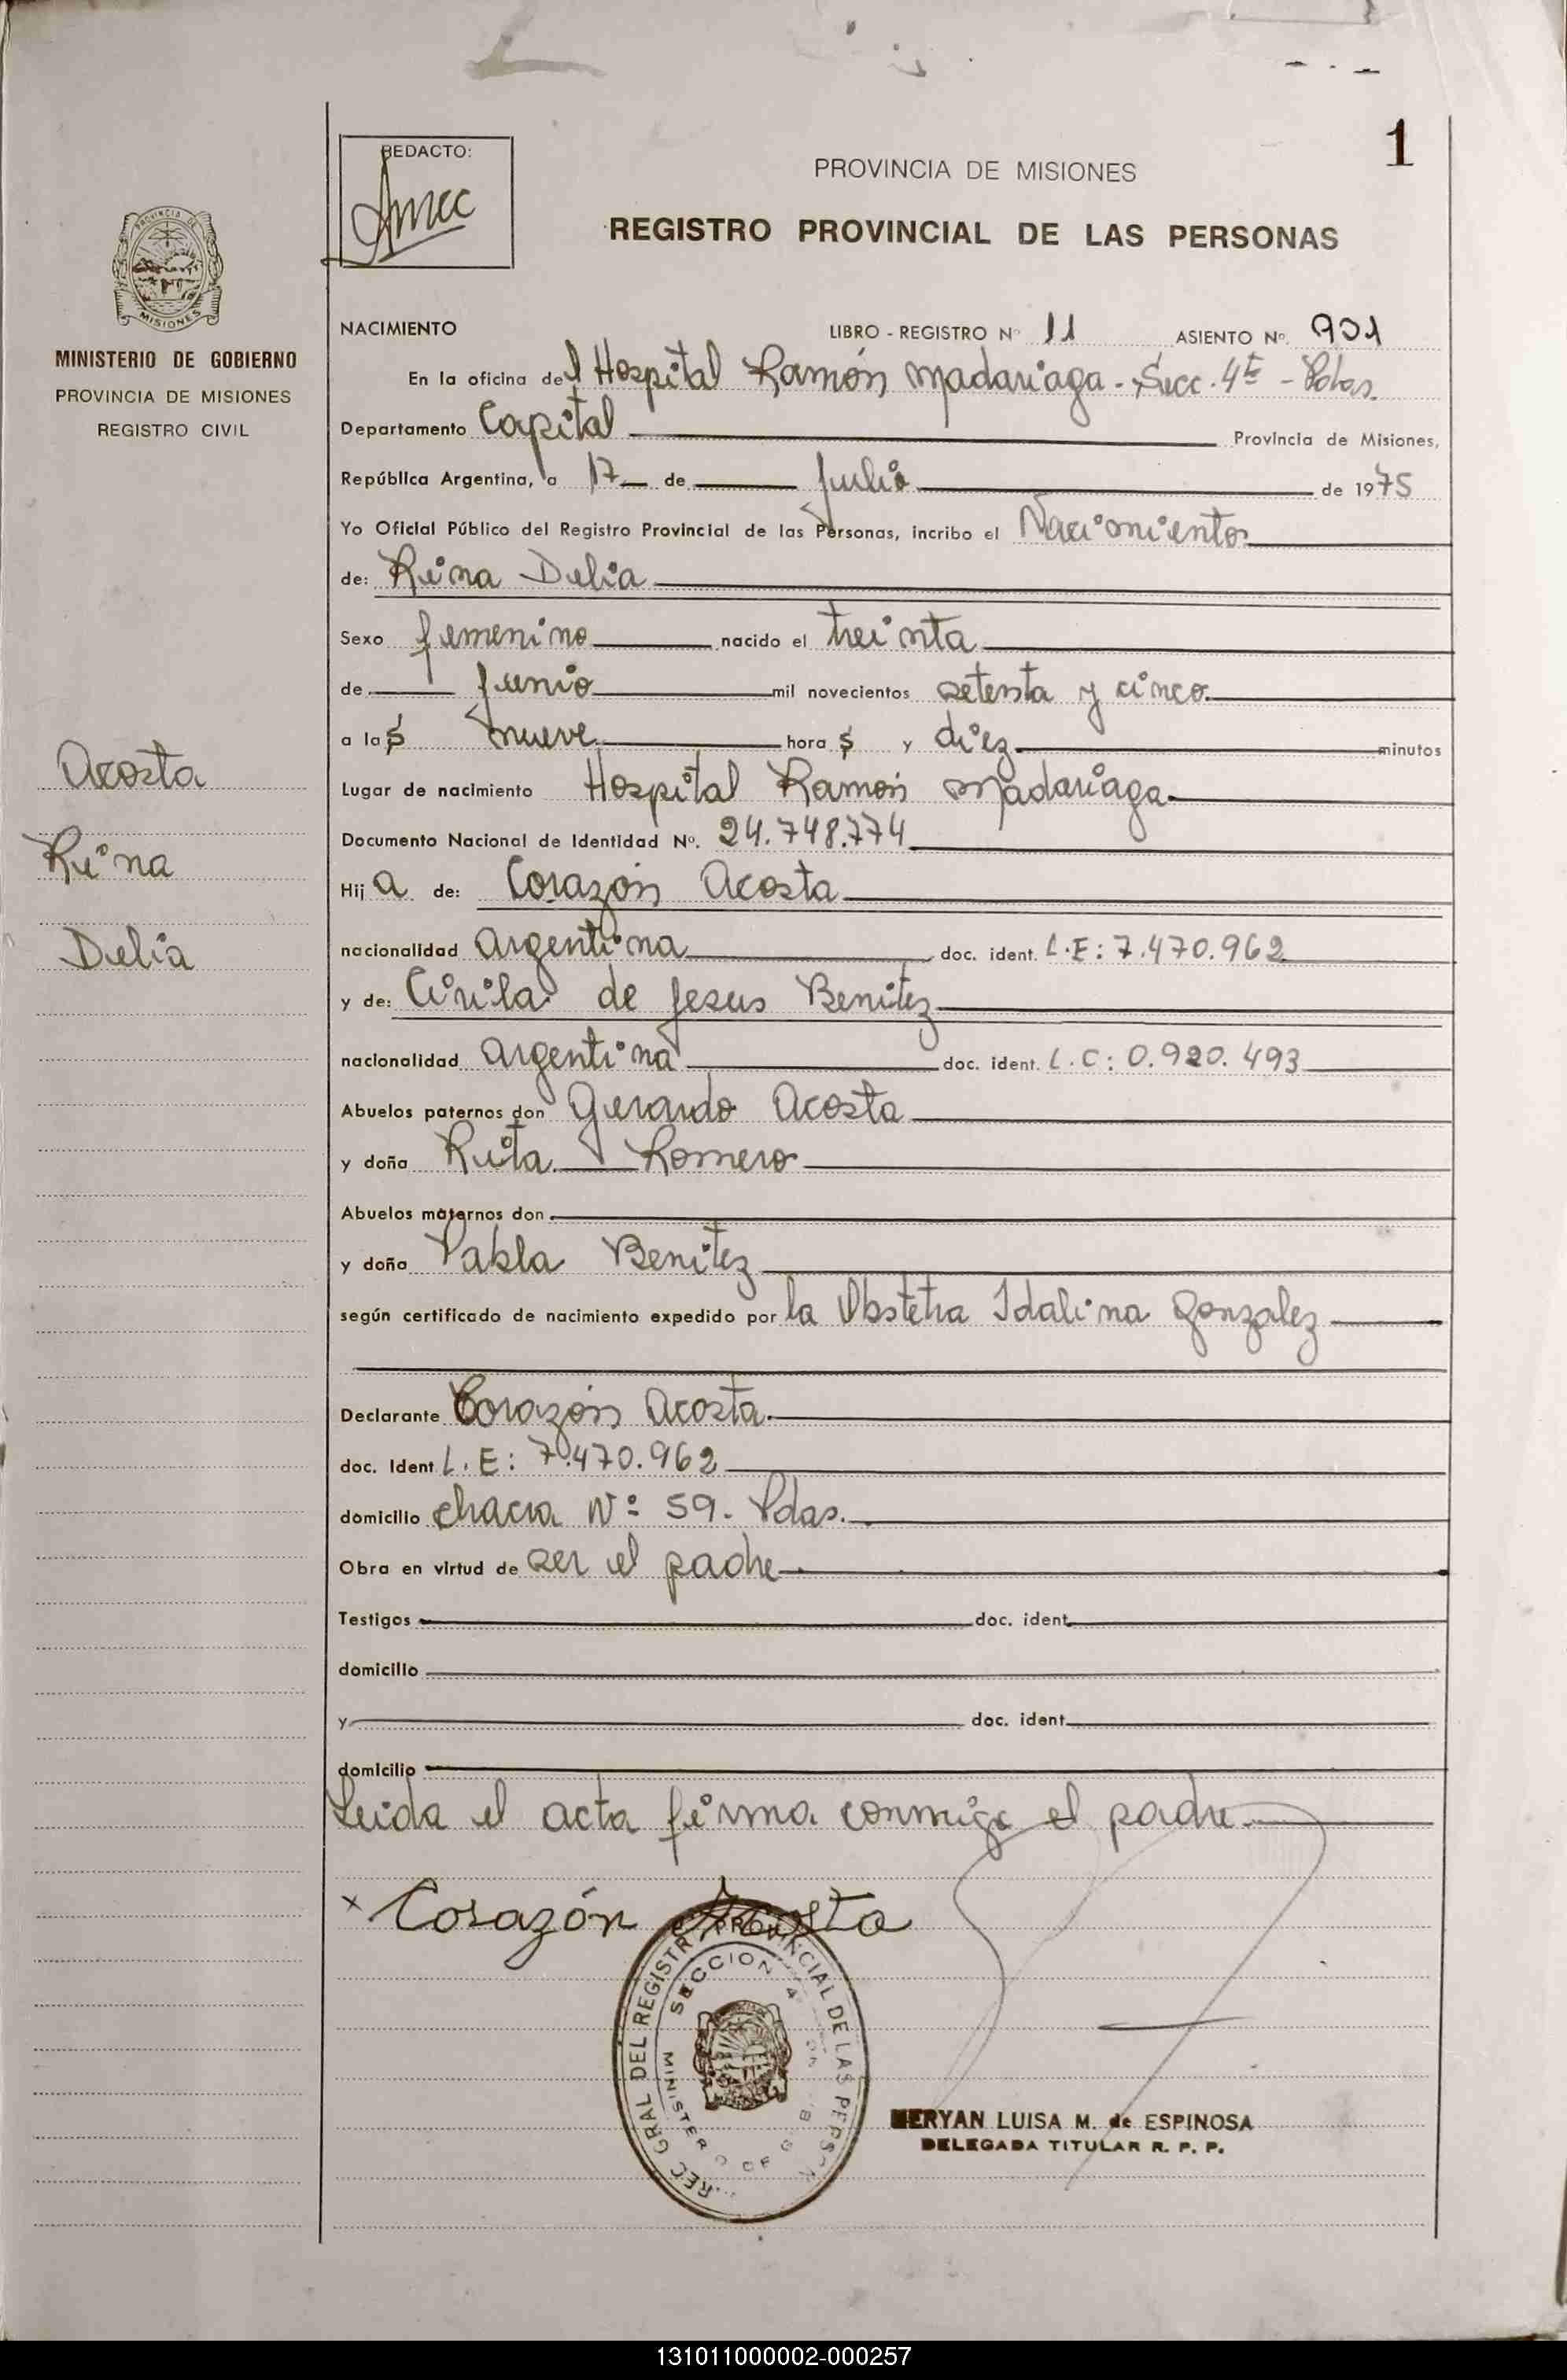 1
REDACTO:
PROVINCIA DE MISIONES
REGISTRO PROVINCIAL DE LAS PERSONAS
PROVINCIA DE
MISIONES
MINISTERIO DE GOBIERNO
PROVINCIA DE MISIONES
REGISTRO CIVIL
Acosta
Reina
Delia
NACIMIENTO LIBRO - REGISTRO Nº 11 ASIENTO Nº. 901
En la oficina del Hospital Ramón Madariaga - Secc. 4ta - Pdas.
Departamento Capital Provincia de Misiones,
República Argentina, a 17 de Julio de 1975
Yo Oficial Público del Registro Provincial de las Personas, incribo el Nacimiento
de: Reina Delia
Sexo femenino nacido el treinta
de Junio mil novecientos setenta y cinco
a las nueve horas y diez minutos
Lugar de nacimiento Hospital Ramón Madariaga
Documento Nacional de Identidad Nº. 24.748.774
Hija de: Corazón Acosta
nacionalidad argentina doc. ident. L.E: 7.470.962
y de: Cirila de Jesus Benitez
nacionalidad argentina doc. ident. L.C: 0.920.493
Abuelos paternos don Gerardo Acosta
y doña Rita Romero
Abuelos maternos don
y doña Pabla Benitez
según certificado de nacimiento expedido por la Obstetra Idalina Gonzalez
Declarante Corazón Acosta
doc. Ident L.E: 7.470.962
domicilio chacra Nº 59. Pdas.
Obra en virtud de ser el padre
Testigos doc. ident.
domicilio
y doc. ident.
domicilio
Leida el acta firma conmigo el padre
x Corazón Acosta
SECCION 4
MINISTERIO DE GOB
MERYAN LUISA M. de ESPINOSA
DELEGADA TITULAR R. P. P.
131011000002-000257